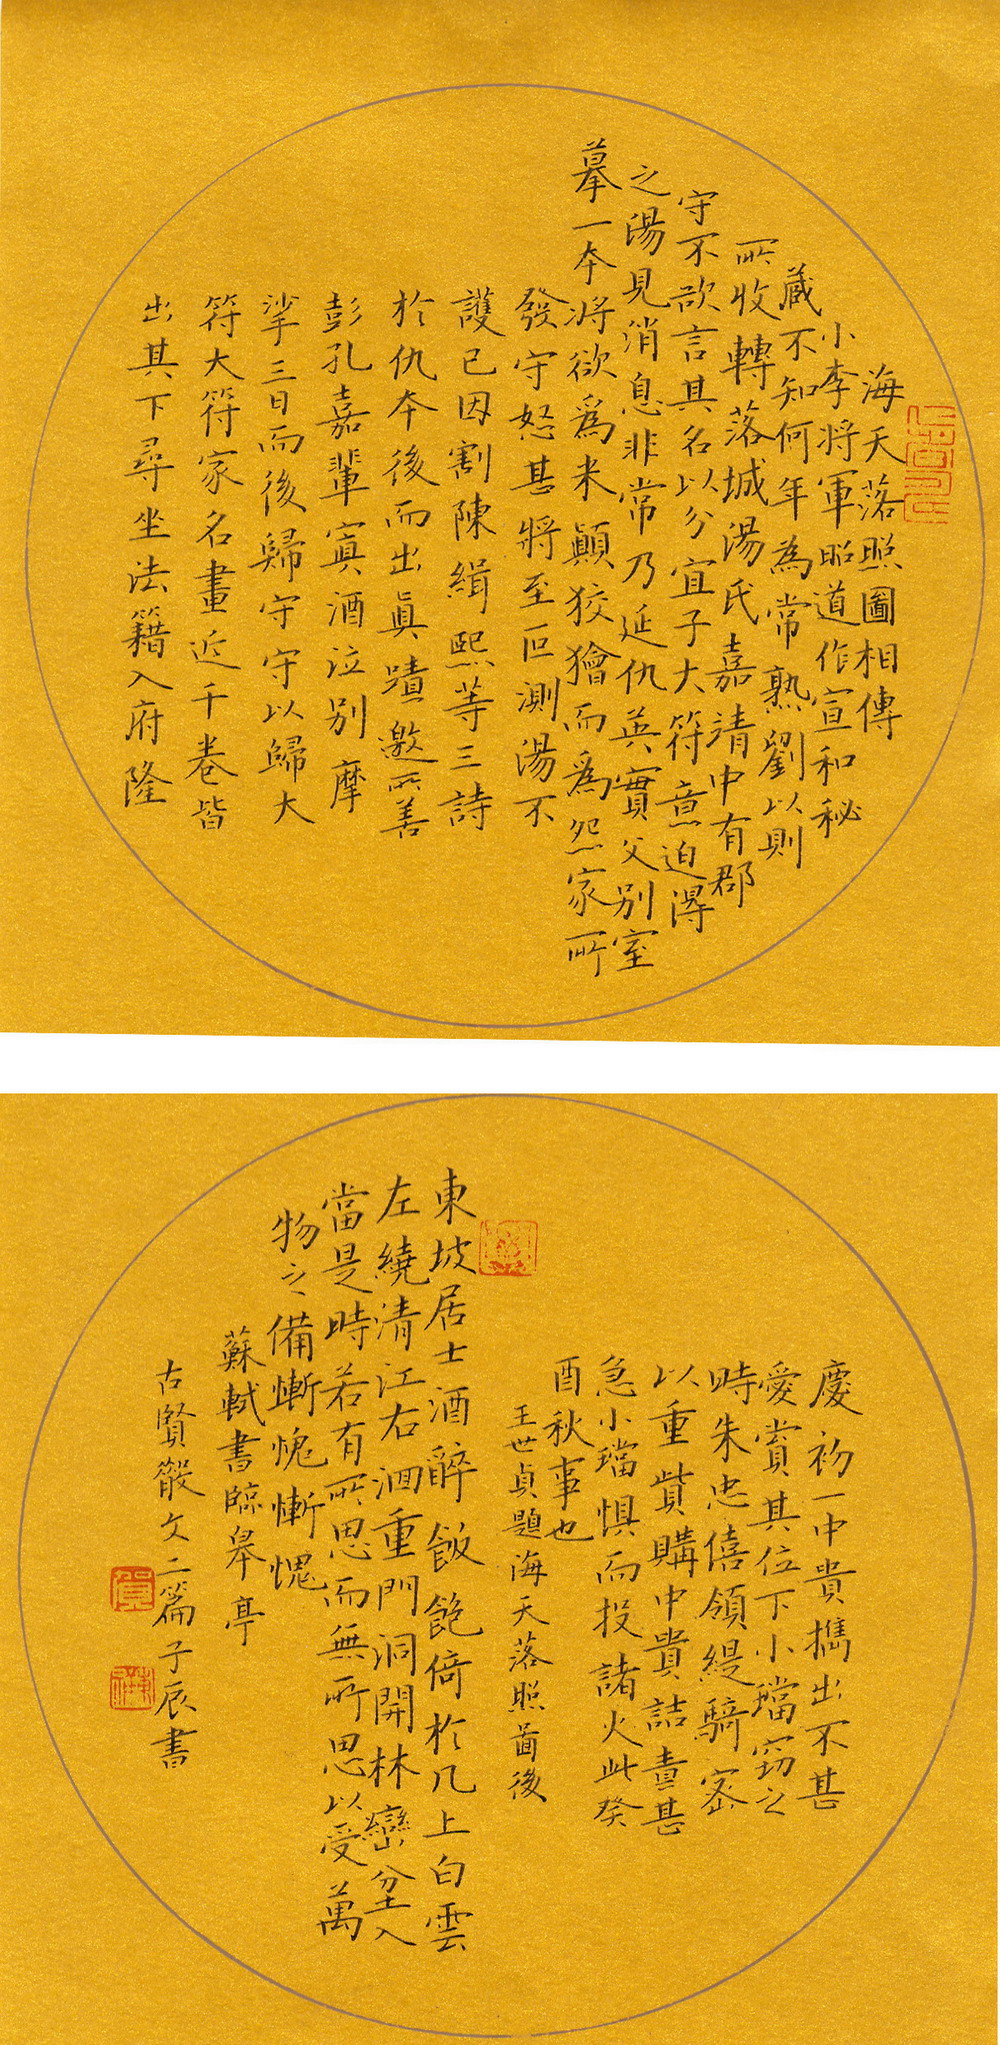 海天落照圖相傳
小李將軍昭道作宣和秘
藏不知何年為常熟劉以則
所收轉落城湯氏嘉清中有郡
守不欲言其名以分宜子大符意迫得
之湯見消息非常乃延仇英實父別室
摹一本將欲爲米顛狡獪而爲怨家所
發守怒甚將至叵測湯不
護已因割陳緝熙等三詩
於仇本後而出眞蹟邀所善
彭孔嘉輩寘酒泣別摩
挲三日而後歸守守以歸大
符大符家名畫近千卷皆
出其下尋坐法籍入府隆
慶初一中貴攜出不甚
愛賞其位下小璫窃之
時朱忠僖領緹騎密
以重貲購中貴詰責甚
急小璫惧而投諸火此癸
酉秋事也
王世貞題海天落照啚後
東坡居士酒醉飯飽倚於几上白雲
左繞清江右洄重門洞開林巒坌入
當是時若有所思而無所思以受萬
物之備慚愧慚愧
蘇軾書臨皋亭
古賢散文二篇子辰書